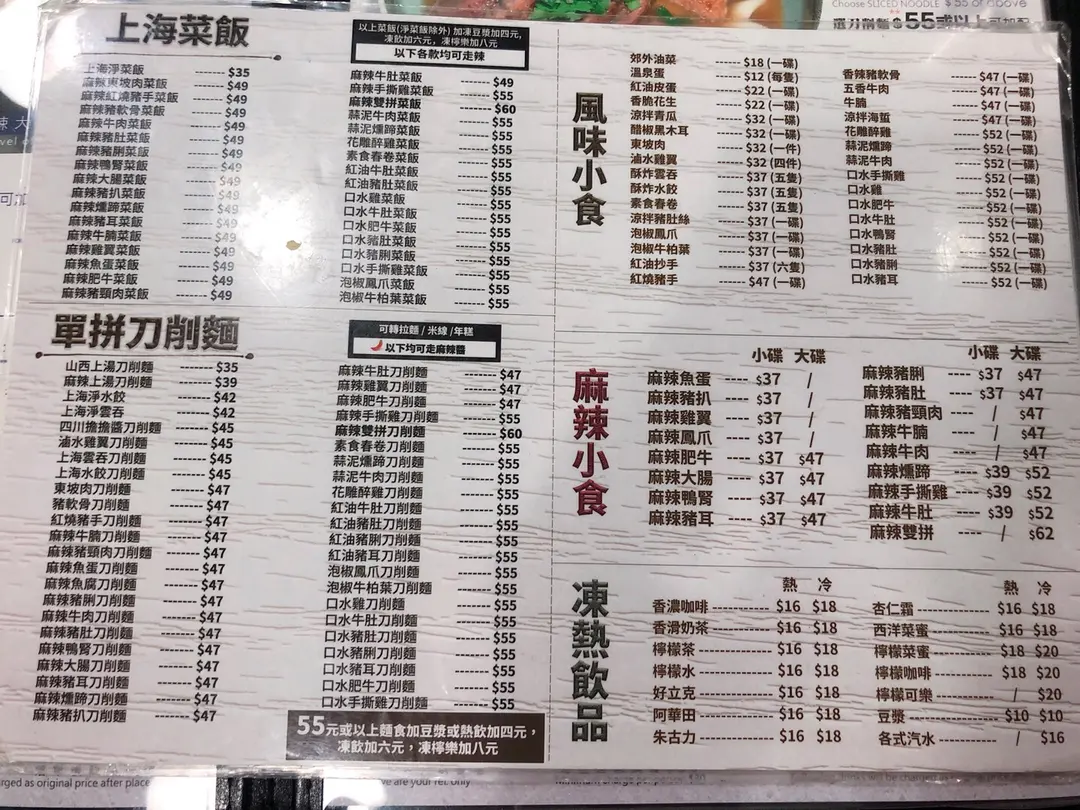 Choose SLICED NOODLE $ 55 or above
$55或以上
上海菜飯
上海淨菜飯 ------- $35
麻辣東坡肉菜飯 ------- $49
麻辣紅燒豬手菜飯 ------- $49
麻辣豬軟骨菜飯 ------- $49
麻辣牛肉菜飯 ------- $49
麻辣豬肚菜飯 ------- $49
麻辣豬脷菜飯 ------- $49
麻辣鴨腎菜飯 ------- $49
麻辣大腸菜飯 ------- $49
麻辣豬扒菜飯 ------- $49
麻辣燻蹄菜飯 ------- $49
麻辣豬耳菜飯 ------- $49
麻辣牛腩菜飯 ------- $49
麻辣雞翼菜飯 ------- $49
麻辣魚蛋菜飯 ------- $49
麻辣肥牛菜飯 ------- $49
麻辣豬頸肉菜飯 ------- $49
以上菜飯(淨菜飯除外) 加凍豆漿加四元,
凍飲加六元, 凍檸樂加八元
以下各款均可走辣
麻辣牛肚菜飯 ------- $49
麻辣手撕雞菜飯 ------- $55
麻辣雙拼菜飯 ------- $60
蒜泥牛肉菜飯 ------- $55
蒜泥燻蹄菜飯 ------- $55
花雕醉雞菜飯 ------- $55
素食春卷菜飯 ------- $55
紅油牛肚菜飯 ------- $55
紅油豬肚菜飯 ------- $55
口水雞菜飯 ------- $55
口水牛肚菜飯 ------- $55
口水肥牛菜飯 ------- $55
口水豬肚菜飯 ------- $55
口水豬脷菜飯 ------- $55
口水手撕雞菜飯 ------- $55
泡椒鳳爪菜飯 ------- $55
泡椒牛柏葉菜飯 ------- $55
單拼刀削麵
山西上湯刀削麵 ------- $35
麻辣上湯刀削麵 ------- $39
上海淨水餃 ------- $42
上海淨雲吞 ------- $42
四川擔擔醬刀削麵 ------- $45
滷水雞翼刀削麵 ------- $45
上海雲吞刀削麵 ------- $45
上海水餃刀削麵 ------- $45
東坡肉刀削麵 ------- $47
豬軟骨刀削麵 ------- $47
紅燒豬手刀削麵 ------- $47
麻辣牛腩刀削麵 ------- $47
麻辣豬頸肉刀削麵 ------- $47
麻辣魚蛋刀削麵 ------- $47
麻辣魚腐刀削麵 ------- $47
麻辣豬脷刀削麵 ------- $47
麻辣牛肉刀削麵 ------- $47
麻辣豬肚刀削麵 ------- $47
麻辣鴨腎刀削麵 ------- $47
麻辣大腸刀削麵 ------- $47
麻辣豬耳刀削麵 ------- $47
麻辣燻蹄刀削麵 ------- $47
麻辣豬扒刀削麵 ------- $47
可轉拉麵 / 米線 /年糕
以下均可走麻辣醬
麻辣牛肚刀削麵 ------- $47
麻辣雞翼刀削麵 ------- $47
麻辣肥牛刀削麵 ------- $47
麻辣手撕雞刀削麵 ------- $55
麻辣雙拼刀削麵 ------- $60
素食春卷刀削麵 ------- $55
蒜泥燻蹄刀削麵 ------- $55
蒜泥牛肉刀削麵 ------- $55
花雕醉雞刀削麵 ------- $55
紅油牛肚刀削麵 ------- $55
紅油豬肚刀削麵 ------- $55
紅油豬脷刀削麵 ------- $55
紅油豬耳刀削麵 ------- $55
泡椒鳳爪刀削麵 ------- $55
泡椒牛柏葉刀削麵 ------- $55
口水雞刀削麵 ------- $55
口水牛肚刀削麵 ------- $55
口水豬肚刀削麵 ------- $55
口水豬脷刀削麵 ------- $55
口水豬耳刀削麵 ------- $55
口水肥牛刀削麵 ------- $55
口水手撕雞刀削麵 ------- $55
55元或以上麵食加豆漿或熱飲加四元,
凍飲加六元, 凍檸樂加八元
風味小食
郊外油菜 ------ $18 (一碟)
溫泉蛋 ------ $12 (每隻)
紅油皮蛋 ------ $22 (一碟)
香脆花生 ------ $22 (一碟)
涼拌青瓜 ------ $32 (一碟)
醋椒黑木耳 ------ $32 (一碟)
東坡肉 ------ $32 (一件)
滷水雞翼 ------ $32 (四件)
酥炸雲吞 ------ $37 (五隻)
酥炸水餃 ------ $37 (五隻)
素食春卷 ------ $37 (五隻)
涼拌豬肚絲 ------ $37 (一碟)
泡椒鳳爪 ------ $37 (一碟)
泡椒牛柏葉 ------ $37 (一碟)
紅油抄手 ------ $37 (六隻)
紅燒豬手 ------ $47 (一碟)
香辣豬軟骨 ------ $47 (一碟)
五香牛肉 ------ $47 (一碟)
牛腩 ------ $47 (一碟)
涼拌海蜇 ------ $47 (一碟)
花雕醉雞 ------ $52 (一碟)
蒜泥燻蹄 ------ $52 (一碟)
蒜泥牛肉 ------ $52 (一碟)
口水手撕雞 ------ $52 (一碟)
口水雞 ------ $52 (一碟)
口水肥牛 ------ $52 (一碟)
口水牛肚 ------ $52 (一碟)
口水鴨腎 ------ $52 (一碟)
口水豬肚 ------ $52 (一碟)
口水豬脷 ------ $52 (一碟)
口水豬耳 ------ $52 (一碟)
麻辣小食
小碟 大碟
麻辣魚蛋 ---- $37 /
麻辣豬扒 ---- $37 /
麻辣雞翼 ---- $37 /
麻辣鳳爪 ---- $37 /
麻辣肥牛 ---- $37 $47
麻辣大腸 ---- $37 $47
麻辣鴨腎 ---- $37 $47
麻辣豬耳 ---- $37 $47
小碟 大碟
麻辣豬脷 ---- $37 $47
麻辣豬肚 ---- $37 $47
麻辣豬頸肉 ---- / $47
麻辣牛腩 ---- / $47
麻辣牛肉 ---- / $47
麻辣燻蹄 ---- $39 $52
麻辣手撕雞 ---- $39 $52
麻辣牛肚 ---- $39 $52
麻辣雙拼 ---- / $62
凍熱飲品
熱 冷
香濃咖啡 ---------- $16 $18
香滑奶茶 ---------- $16 $18
檸檬茶 ---------- $16 $18
檸檬水 ---------- $16 $18
好立克 ---------- $16 $18
阿華田 ---------- $16 $18
朱古力 ---------- $16 $18
熱 冷
杏仁霜 ---------- $16 $18
西洋菜蜜 ---------- $16 $18
檸檬菜蜜 ---------- $18 $20
檸檬咖啡 ---------- $18 $20
檸檬可樂 ---------- / $20
豆漿 ---------- $10 $10
各式汽水 ---------- / $16
rged as original price after place